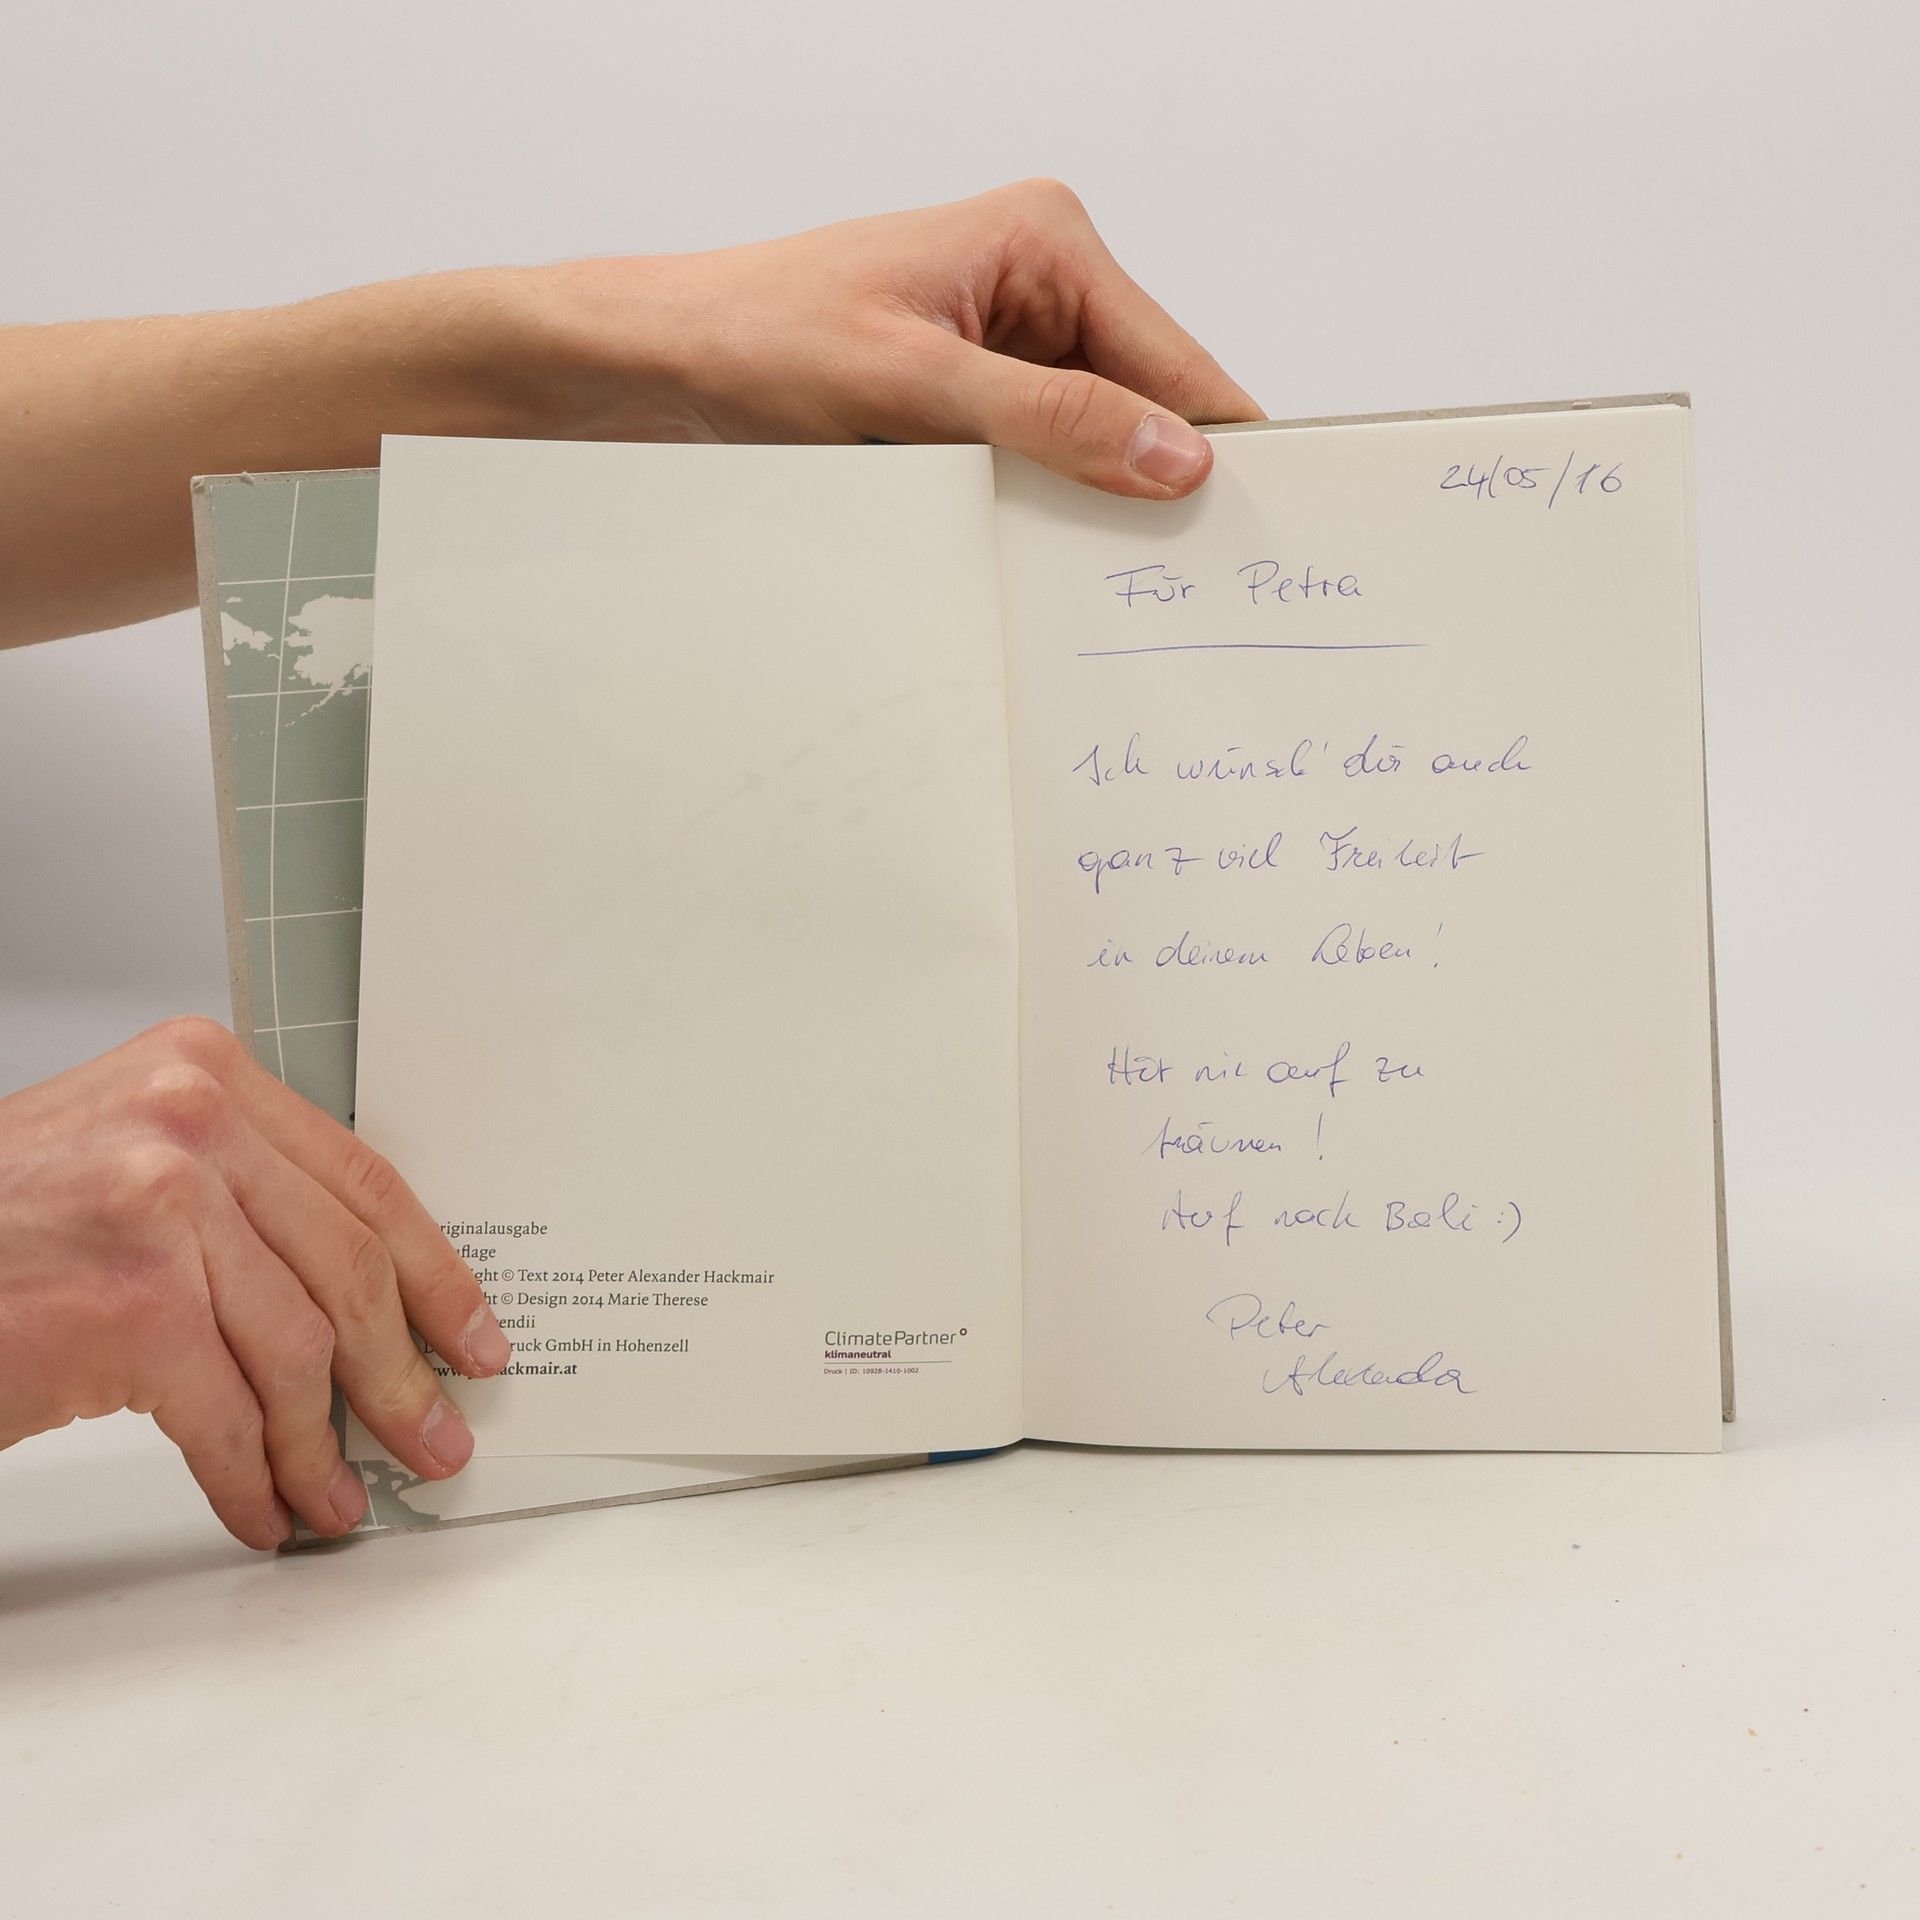 riginalausgabe
uflage
ght © Text 2014 Peter Alexander Hackmair
ht © Design 2014 Marie Therese
endii
D ruck GmbH in Hohenzell
www. ackmair.at
ClimatePartner°
klimaneutral
Druck | ID: 10928-1410-1002
24/05/16
Für Petra
Ich wünsch' dir auch
ganz viel Freiheit
in deinem Leben!
Hör nie auf zu
träumen!
Auf nach Bali :)
Peter
Alexander